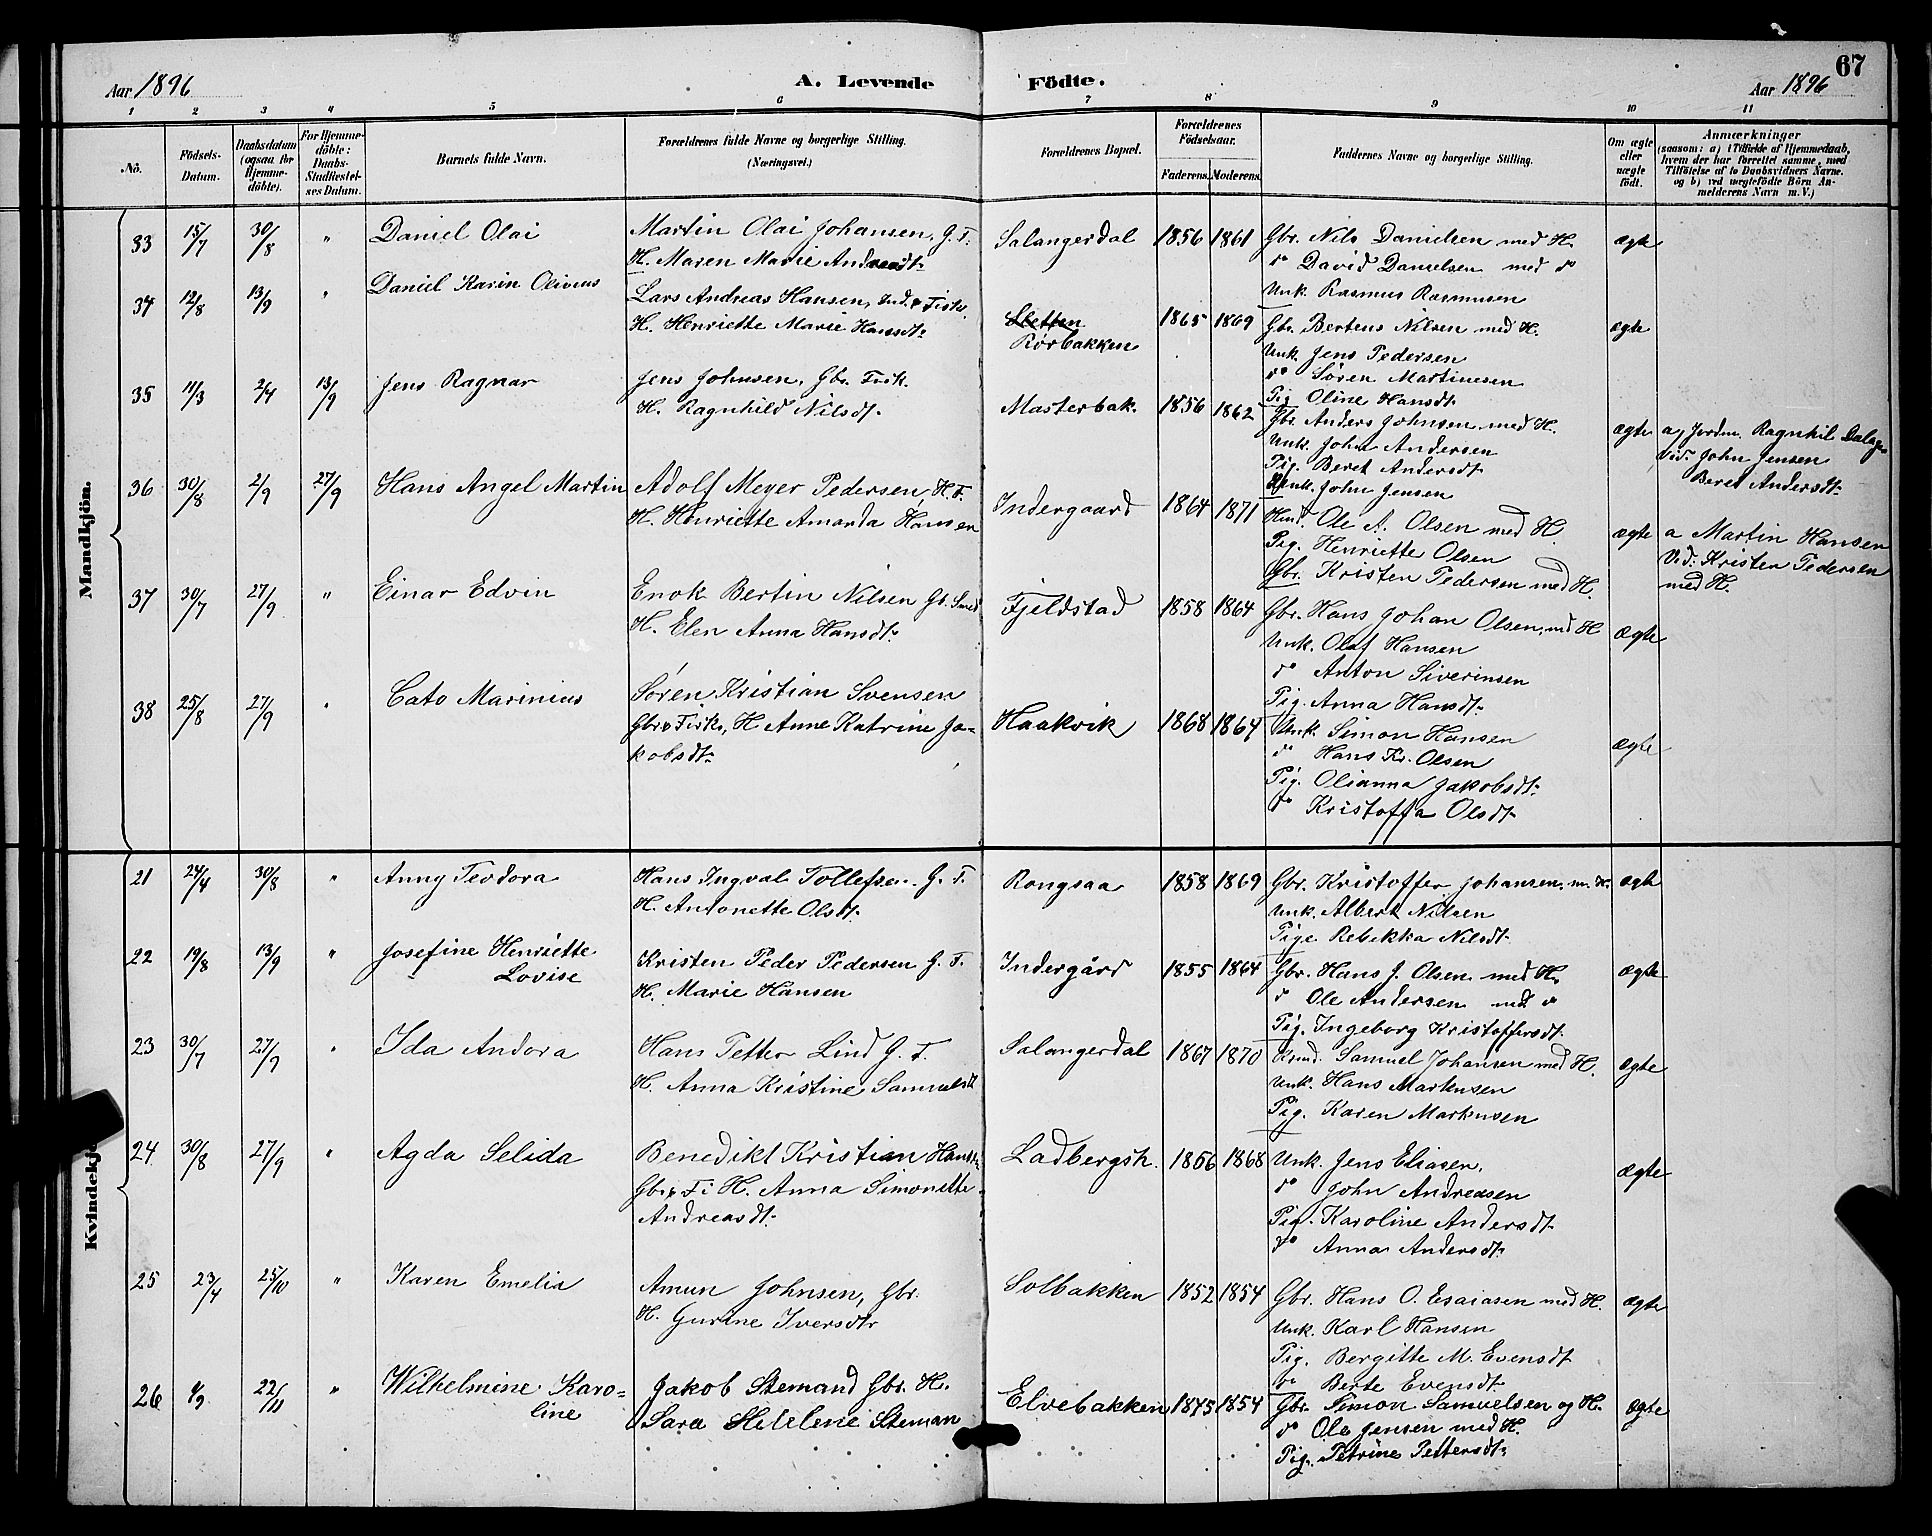 67
Aar 1896
A. Levende Födte.
Aar 1896
1 2 3 4 5 6 7 8 9 10 11
No.
Födsels-Datum.
Daabsdatum (ogsaa for Hjemme-döbte).
For Hjemme-döbte: Daabs-Stadfæstel-ses Datum.
Barnets fulde Navn.
Forældrenes fulde Navne og borgerlige Stilling.
(Næringsvei.)
Forældrenes Bopæl.
Forældrenes Födselsaar.
Faderens. Moderens.
Faddernes Navne og borgerlige Stilling.
Om ægte eller uægte födt.
Anmærkninger
(saasom: a) i Tilfælde af Hjemmedaab,
hvem der har forrettet samme, med
Tilföielse af to Daabsvidners Navne.
og b) ved uægtefödte Börn An-
melderens Navn m. V.)
Mandkjön.
33 15/7 30/8 " Daniel Olai Martin Olai Johansen, G. F. Salangerdal 1856 1861 Gbr. Nils Danielsen med H. ægte
H. Maren Marie Andreasdt. do David Danielsen med do
Unk. Rasmus Rasmusen
34 12/8 13/9 " Daniel Karin Olivius Lars Andreas Hansen, Ind. & Fisk. Sletten 1865 1869 Gbr. Bertens Nilsen med H. ægte
H. Henriette Marie Hansdt. Rörbakken Unk. Jens Pedersen
do Sören Martinesen
Pig. Oline Hansdt.
35 11/3 2/4 13/9 Jens Ragnar Jens Johnsen, Gbr. Fisk. Masterbak. 1856 1862 Gbr. Anders Johnsen med H. ægte a, Jordm. Ragnhil
H. Ragnhild Nilsdt. Unk. John Andersen Vid. John Jensen
Pig. Beret Andersdt. Beret Andersdt.
Unk. John Jensen
36 30/8 2/9 27/9 Hans Angel Martin Adolf Meyer Pedersen, H. F. Indergaard 1864 1871 Hmd. Ole A. Olsen med H. ægte a Martin Hansen
H. Henriette Amanda Hansen Pig. Henriette Olsen Vid: Kristen Pedersen
Gbr. Kristen Pedersen med H. med H.
37 30/7 27/9 " Einar Edvin Enok Bertin Nilsen Gb. Smed Fjeldstad 1858 1864 Gbr. Hans Johan Olsen, md H ægte
H. Elen Anna Hansdt. Unk. Olaf Hansen
do Anton Siverinsen
Pig. Anna Hansdt.
38 25/8 27/9 " Cato Marinius Sören Kristian Svensen Haakvik 1868 1864 Unk. Simon Hansen ægte
Gbr & Fisk, H Anne Katrine Ja- do Hans Kr. Olsen
kobsdt. Pig. Olianna Jakobsdt.
do Kristoffa Olsdt.
Kvindekj
21 24/4 30/8 " Anny Teodora Hans Ingval Tollefsen. G. F. Rongsaa 1858 1869 Gbr. Kristoffer Johansen, m. H. ægte
H. Antonette Olsdt. Unk. Albert Nilsen
Pige Rebekka Nilsdt.
22 19/8 13/9 " Josefine Henriette Kristen Peder Pedersen G. F. Indergård 1855 1864 Gbr. Hans J. Olsen med H. ægte
Lovise H. Marie Hansen do Ole Andersen med do
Pig. Ingeborg Kristoffersdt.
23 30/7 27/9 " Ida Andora Hans Petter Lind G. F. Salangerdal 1867 1870 Samuel Johansen med H. ægte
H. Anna Kristine Samuelsdt Unk. Hans Markusen
Pig. Karen Markusen
24 30/8 27/9 " Agda Selida Benedikt Kristian Hansen Ladbergsh. 1856 1868 Unk. Jens Eliasen, ægte
Gbr & Fi H. Anna Simonette do John Andreasen
Andreasdt. Pig. Karoline Andersdt.
do Anna Andersdt.
25 23/4 25/10 " Karen Emelia Amun Johnsen, Gbr. Solbakken 1852 1854 Gbr. Hans O. Esaiasen med H. ægte
H. Gurine Iversdtr Unk. Karl Hansen
Pig. Bergitte M. Evensdt
do Berte Evensdt.
26 1/9 22/11 " Wilhelmine Karo- Jakob Stemand Gbr. H. Elvebakken 1845 1854 Gbr. Simon Samuelsen og H. ægte
line Sara Helene Steman do Ole Jensen med H.
Pig. Petrine Pettersdt.